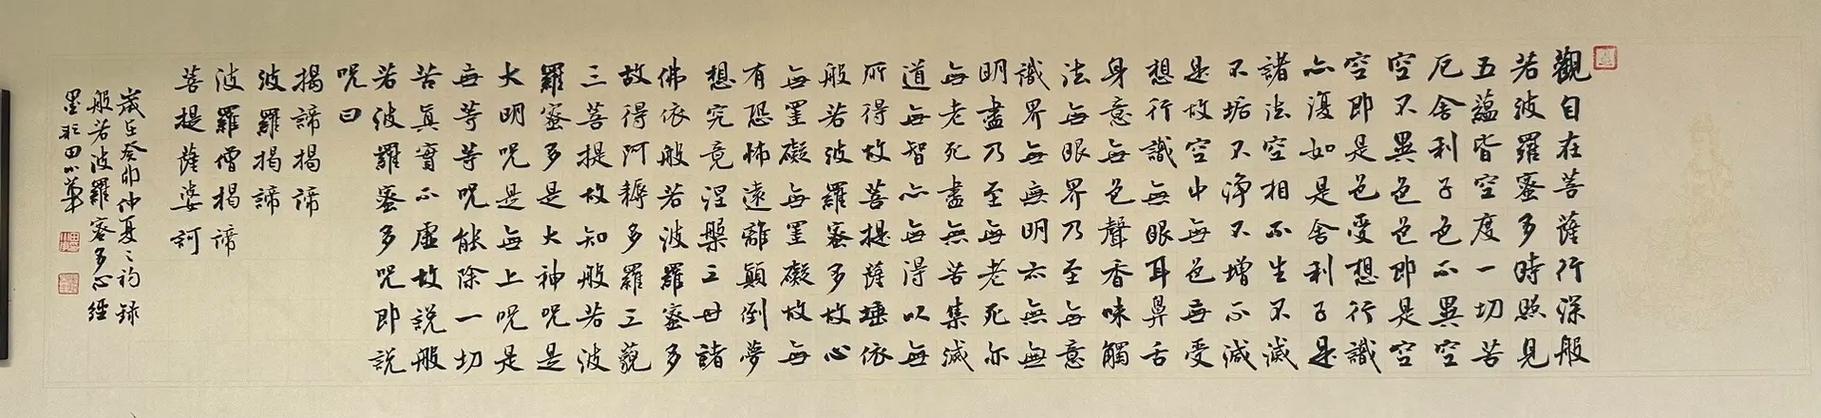 觀自在菩薩行深般
若波羅蜜多時照見
五蘊皆空度一切苦
厄舍利子色不異空
空不異色色即是空
空即是色受想行識
亦復如是舍利子是
諸法空相不生不滅
不垢不淨不增不減
是故空中無色無受
想行識無眼耳鼻舌
身意無色聲香味觸
法無眼界乃至無意
識界無無明亦無無
明盡乃至無老死亦
無老死盡無苦集滅
道無智亦無得以無
所得故菩提薩埵依
般若波羅蜜多故心
無罣礙無罣礙故無
有恐怖遠離顛倒夢
想究竟涅槃三世諸
佛依般若波羅蜜多
故得阿耨多羅三藐
三菩提故知般若波
羅蜜多是大神呪是
大明呪是無上呪是
無等等呪能除一切
苦真實不虛故說般
若波羅蜜多呪即說
呪曰
揭諦揭諦
波羅揭諦
波羅僧揭諦
菩提薩婆訶
歲在癸卯仲夏之初錄
般若波羅蜜多心經
墨田小華